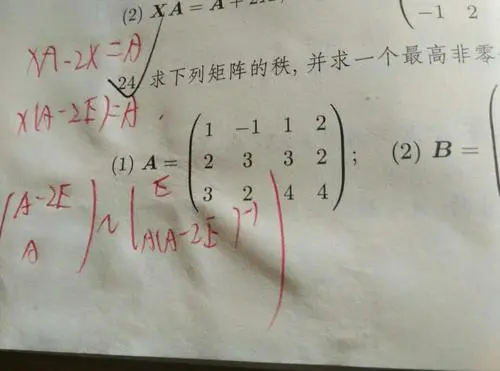 (2) XA = A + 2X
-1 2
XA-2X=A
24 求下列矩阵的秩,并求一个最高非零
X(A-2E)=A.
(1) A = ( 1 -1 1 2
2 3 3 2
3 2 4 4 ); (2) B = (
( A-2E
A ) ~ ( E
A(A-2E)⁻¹ )